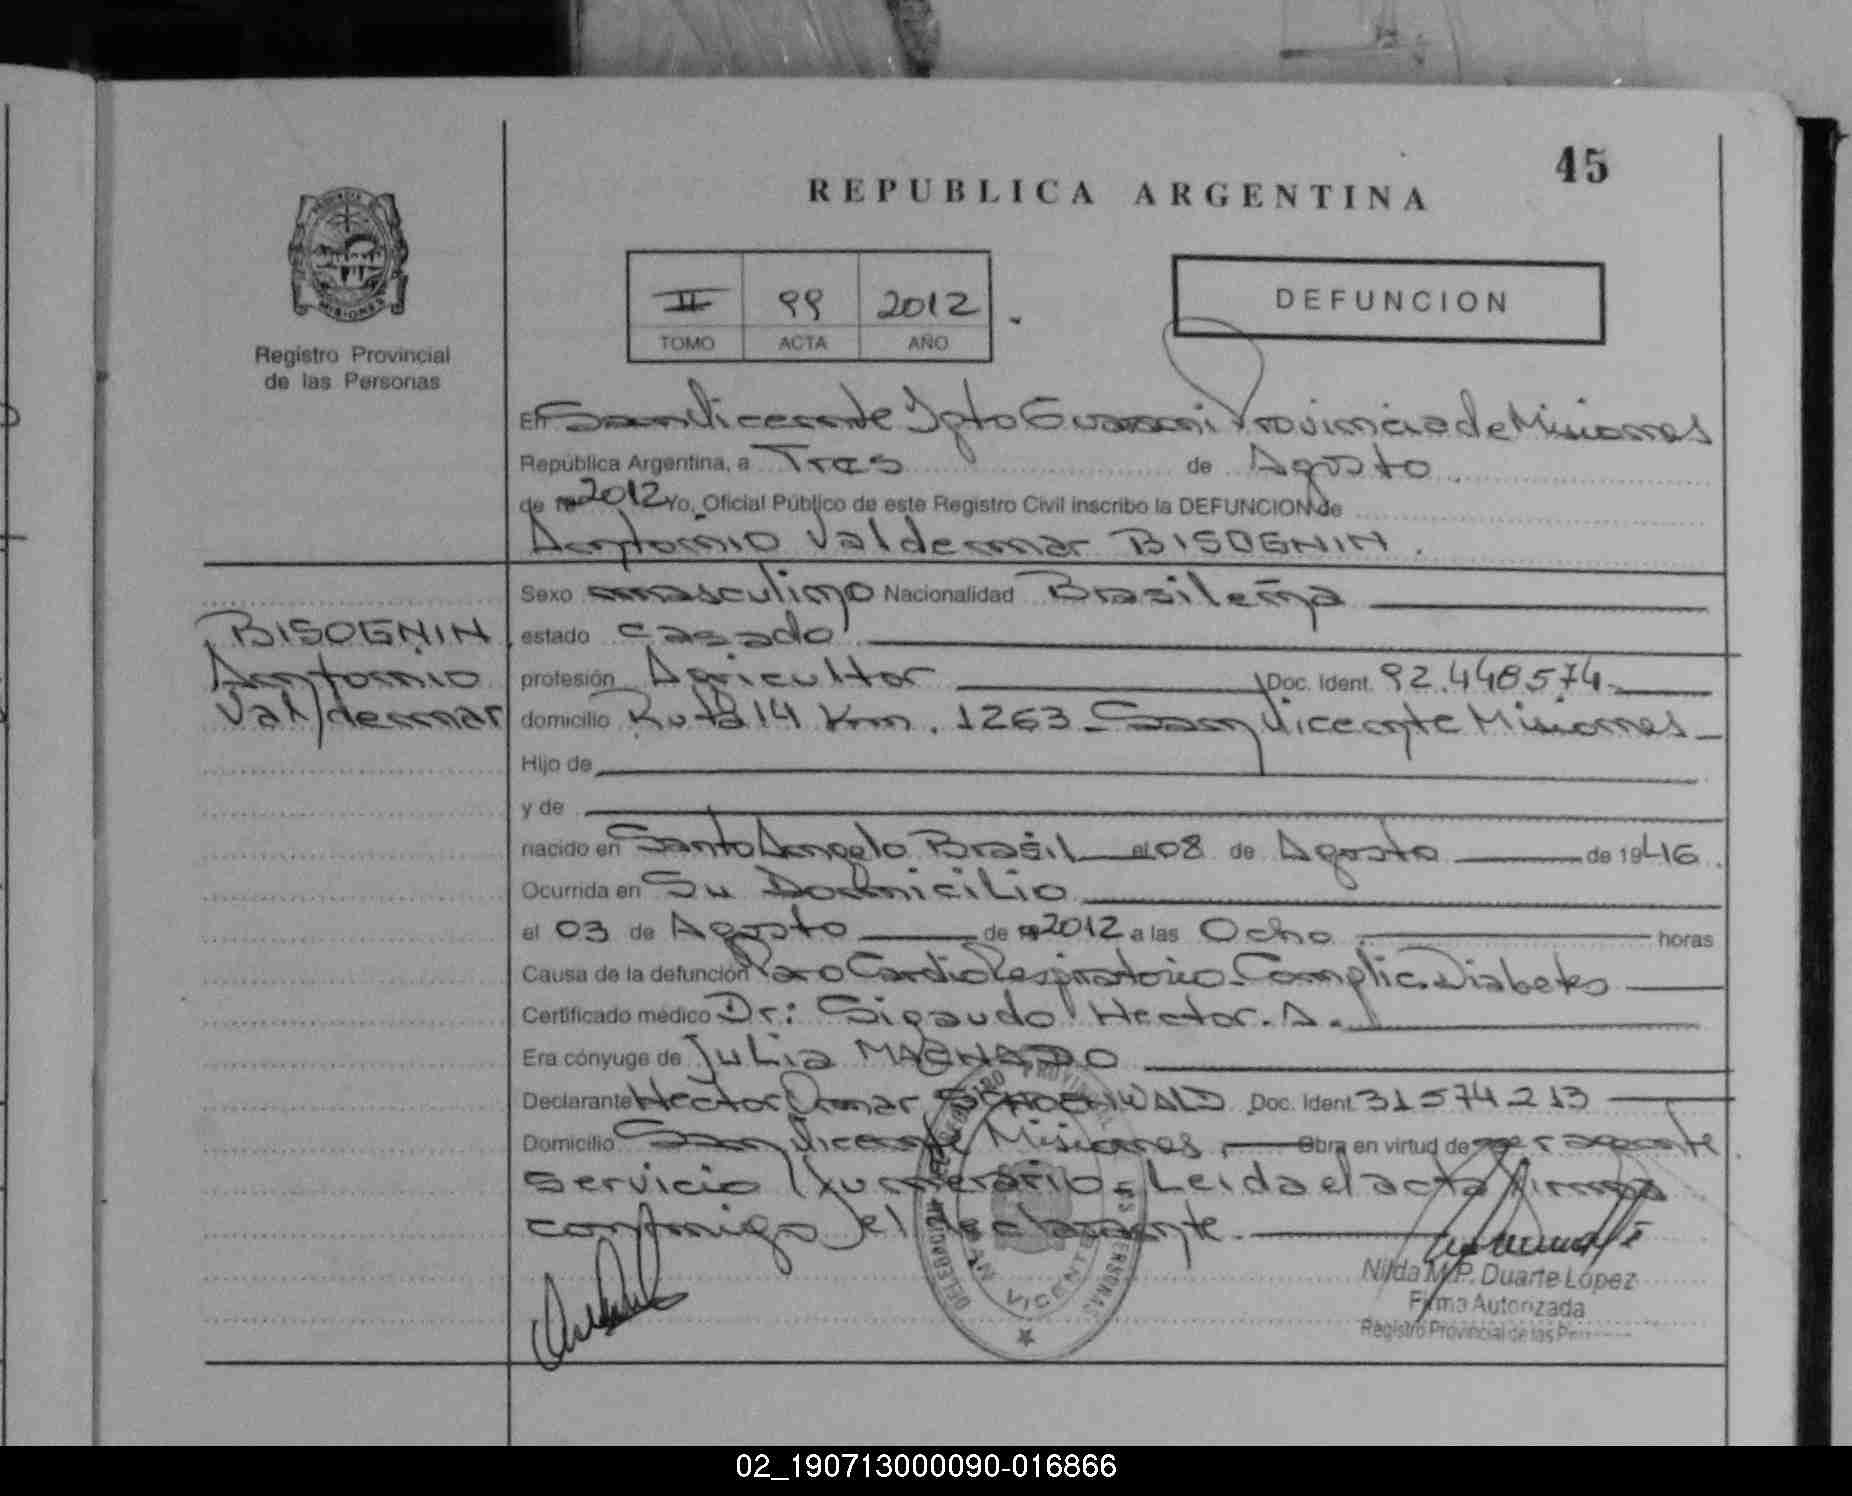 45
REPUBLICA ARGENTINA
MISIONES
Registro Provincial
de las Personas
II 99 2012
TOMO ACTA AÑO
DEFUNCION
En San Vicente Dpto Guarani Provincia de Misiones
República Argentina, a Tres de Agosto
de 2012 Yo, Oficial Público de este Registro Civil inscribo la DEFUNCION de
Antonio Valdemar BISOGNIN.
Sexo masculino Nacionalidad Brasileña
BISOGNIN
Antonio
Valdemar
estado casado
profesión Agricultor Doc. Ident. 92.448574
domicilio Ruta 14 Km. 1263 - San Vicente Misiones
Hijo de
y de
nacido en Santo Angelo Brasil el 08 de Agosto de 1946.
Ocurrida en Su Domicilio
el 03 de Agosto de 2012 a las Ocho horas
Causa de la defunción Paro Cardio Respiratorio - Complic. Diabetes
Certificado médico Dr: Sigaudo Hector. A.
Era cónyuge de Julia
Declarante Hector Omar SCHOENWALD Doc. Ident. 31574213
Domicilio San Vicente Misiones. Obra en virtud de ser agente
servicio - Leida el acta firma
conmigo el declarante.
SAN VICENTE
Nilda M.P. Duarte López
Firma Autorizada
Registro Provincial de las
02_190713000090-016866